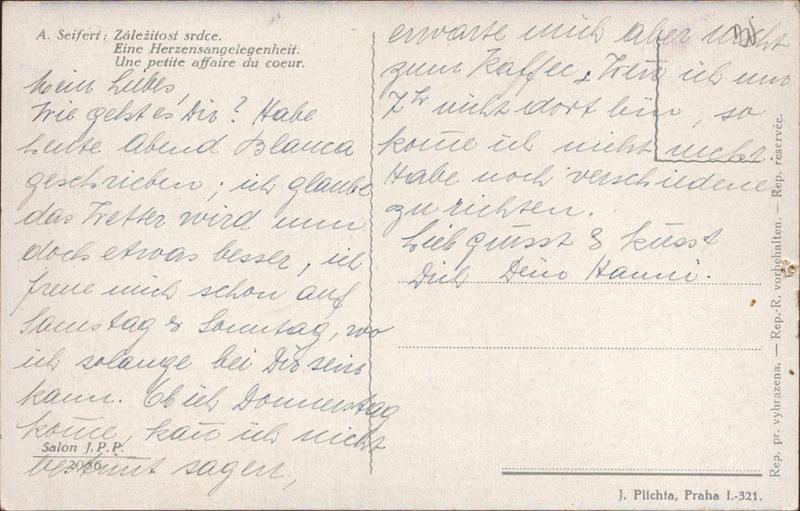 A. Seifert: Záležitost srdce.
Eine Herzensangelegenheit.
Une petite affaire du coeur.
Mein Liebes,
Wie geht es Dir? Habe
heute Abend Blanca
geschrieben; ich glaube
das Wetter wird nun
doch etwas besser, ich
freue mich schon auf
Samstag & Sonntag, wo
ich solange bei Dir sein
kann. Ob ich Donnerstag
kome, kan ich nicht
bestimt sagen,
Salon J. P. P.
2086
erwarte mich aber nicht
zum Kaffee. Wen ich um
7 h nicht dort bin, so
kome ich nicht mehr.
Habe noch verschiedene
zu richten.
Lieb grüsst & küsst
Dich Dein Hanni.
Rep. pr. vyhrazena. — Rep.-R. vorbehalten. — Rep. reservée.
J. Plichta, Praha I.-321.